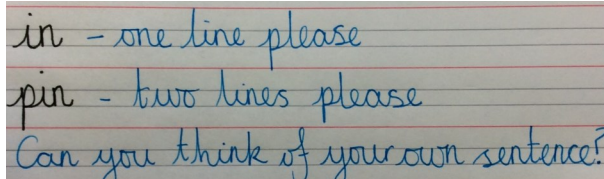 in - one line please
pin - two lines please
Can you think of your own sentence?